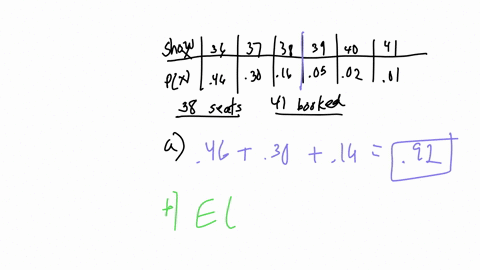 show 36 37 38 39 40 41
P(x) .46 .30 .16 .05 .02 .01
38 seats 41 booked
a) .46 + .30 + .16 = .92
b) E(